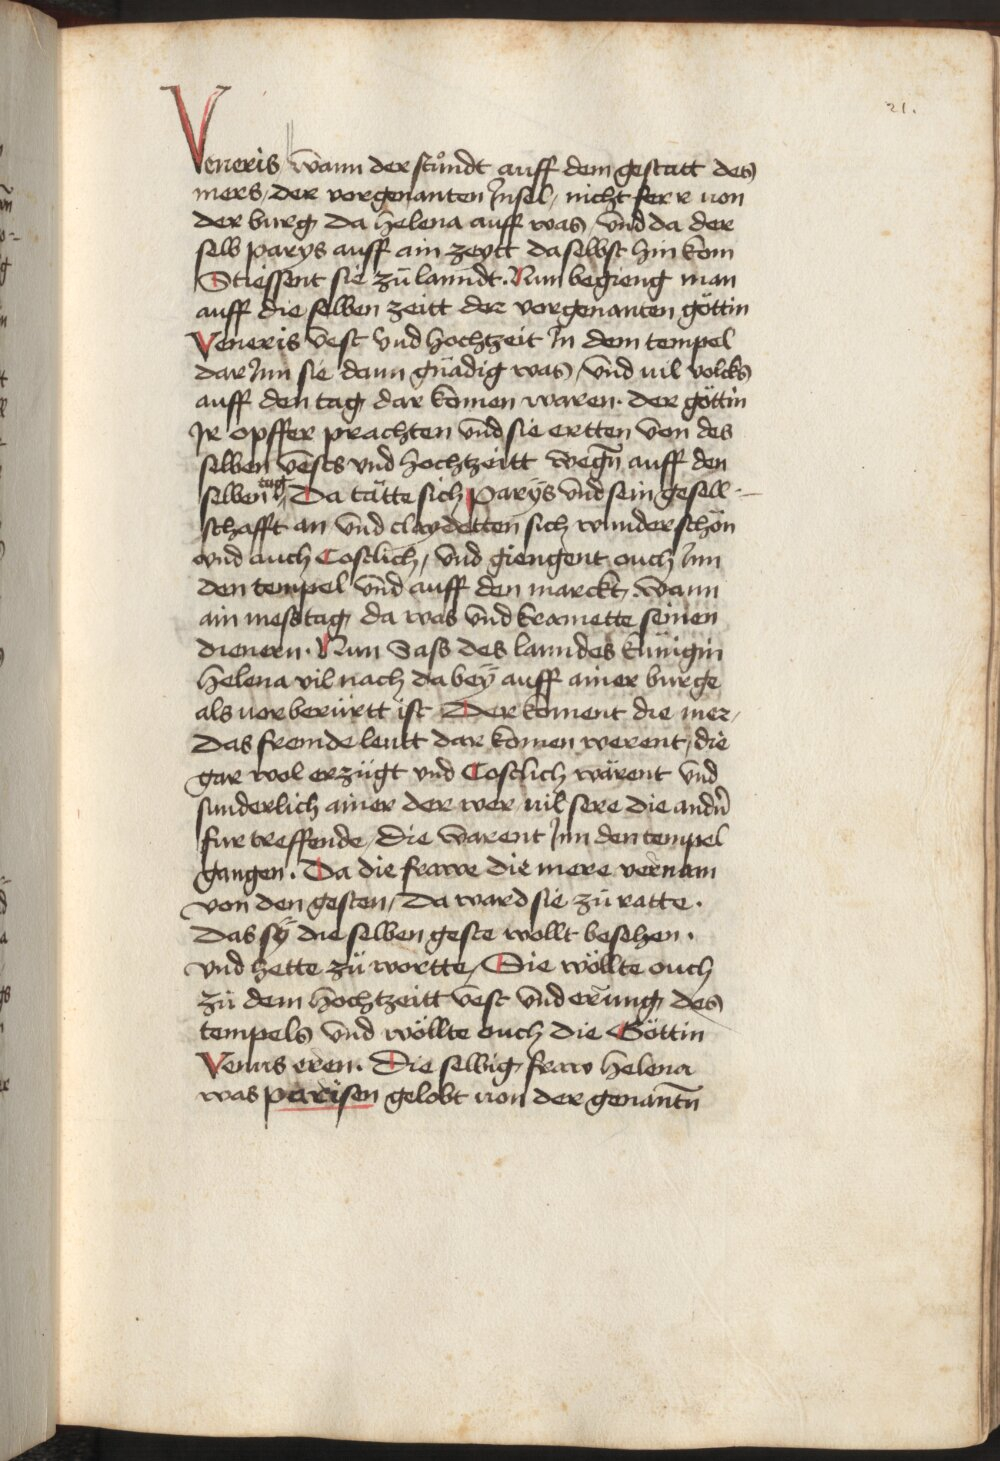 21.
Veneris wann der stůndt auff dem gestatt des
mers / der vorgenanten Jnsel / nicht ferr von
der burg da helena auff was / vnd da der
selb parys auff ain zeytt daselbst hin kom
Stiessent sie zů lanndt. Nun begieng man
auff die selben zeitt der vorgenanten göttin
Veneris vest vnd hochtzeit Jn dem tempel
dar Jnn sie dann gnädig was / vnd vil volcks
auff den tag dar komen waren. der göttin
Jr opffer prachten vnd sie ertten von des
selben vests vnd hochtzeitt wegn̄ auff den
selben tag / Da tätte sich parÿs vnd sein gesell-
schafft an vnd claydetten sich wunderschön
vnd auch Costlich / vnd giengent ouch Jnn
den tempel vnd auff den marckt. wann
ain messtag da was vnd kramette seinen
dienern. Nun Sass des lanndes künigin
helena vil nach da beÿ auff ainer burge
als vor berürtt ist Der koment die mer /
Das fremde leutt dar komen werent / die
gar wol erzügt vnd Costlich wärent vnd
sunderlich ainer der wer vil sere die andn̄
fur treffende / Die warent Jnn den tempel
gangen. Da die frawe die mere vernam
von den gesten / Da ward sie zů ratte.
Das sÿ die selben geste wollt besehen.
vnd hette zů wortte / Sie wöllte ouch
zů dem hochtzeitt vest vnd erung des
tempels vnd wöllte ouch die Göttin
Venus eren. Die selbig fraw helena
was parisen gelobt von der genantn̄